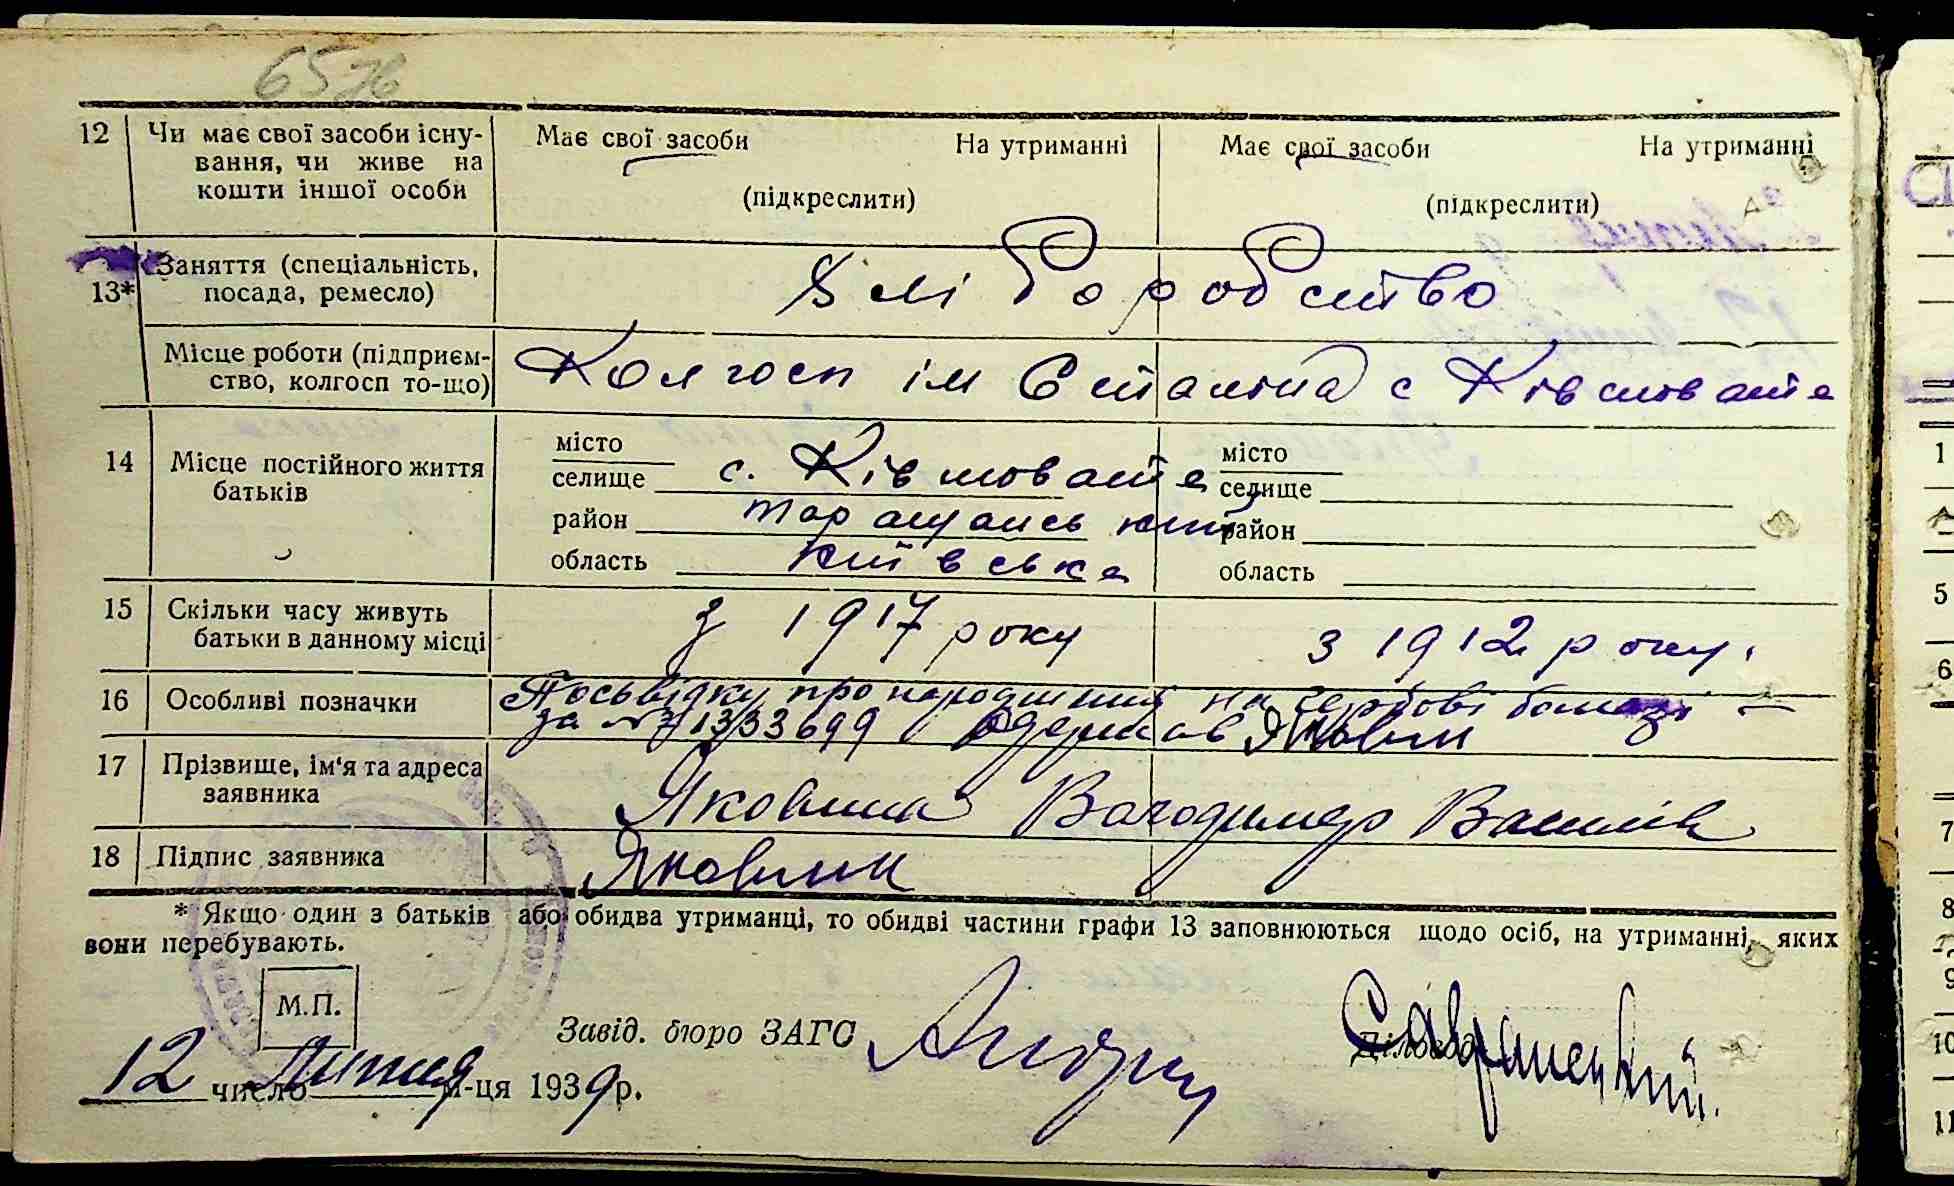 12 Чи має свої засоби існу- Має свої засоби На утриманні Має свої засоби На утриманні
вання, чи живе на
кошти іншої особи (підкреслити) (підкреслити)
Заняття (спеціальність,
13* посада, ремесло) Хліборобство
Місце роботи (підприєм-
ство, колгосп то-що) Колгосп ім Сталіна с Ківшовата
14 Місце постійного життя
батьків
місто місто
селище с. Ківшовата селище
район район
область Київська область
15 Скільки часу живуть
батьки в данному місці з 1917 року з 1912 року.
16 Особливі позначки Посьвідку про народження на гербові
за № 1333699 одержав Яковин
17 Прізвище, ім'я та адреса
заявника Володимер Василів
18 Підпис заявника Яковин
* Якщо один з батьків або обидва утриманці, то обидві частини графи 13 заповнюються щодо осіб, на утриманні, яких
вони перебувають.
М.П.
Завід. бюро ЗАГС
12 число Липня м-ця 1939 р.